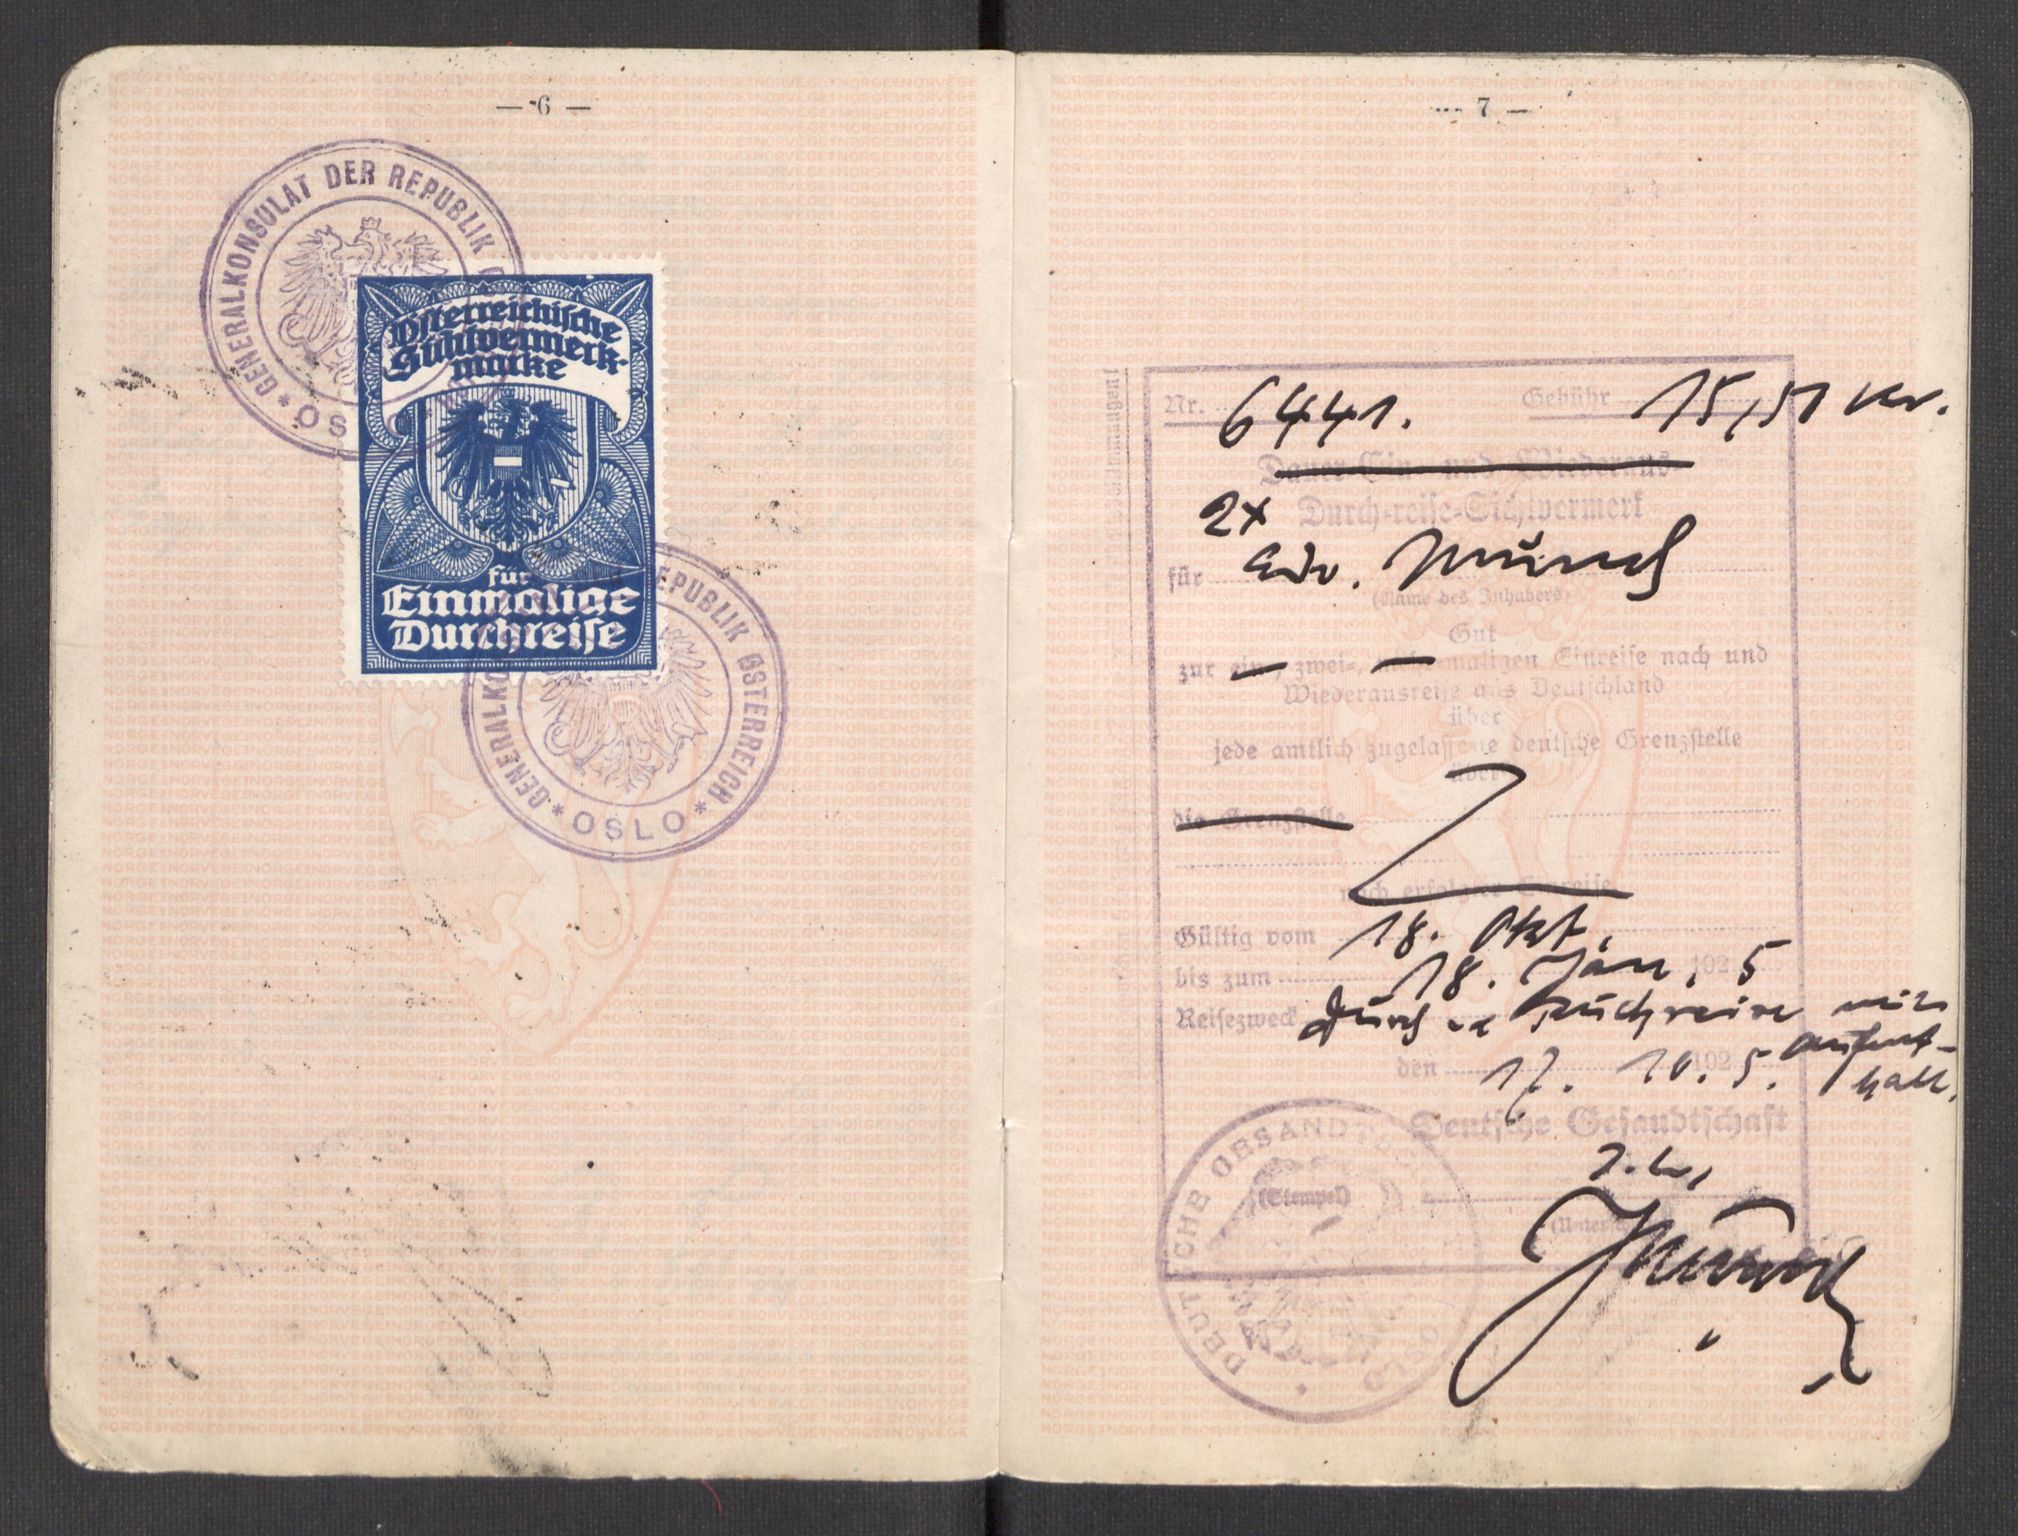 — 6 —
GENERALKONSULAT DER REPUBLIK
* OS
Österreichische
Sichtvermerk-
marke
für
Einmalige
Durchreise
GENERALKO EPUBLIK ÖSTERREICH
* OSLO *
— 7 —
Nr. 6441. Gebühr 15,51 Kr.
Dauer-Ein- und Wiederaus-
2x Durch-reise-Sichtvermerk
für Edv. Munch
(Name des Inhabers)
Gut
zur ein-, zwei-, maligen Einreise nach und
Wiederausreise aus Deutschland
über
jede amtlich zugelassene deutsche Grenzstelle
über
die Grenzstelle
nach erfolgter Einreise
Gültig vom 18. Okt.
bis zum 18. Jan. 192 5
Reisezweck Durch Rückreise
Aufent-
halt.
den 17. 10. 192 5.
Deutsche Gesandtschaft
(Stempel)
DEUTSCHE GESANDTSCHAFT OSLO